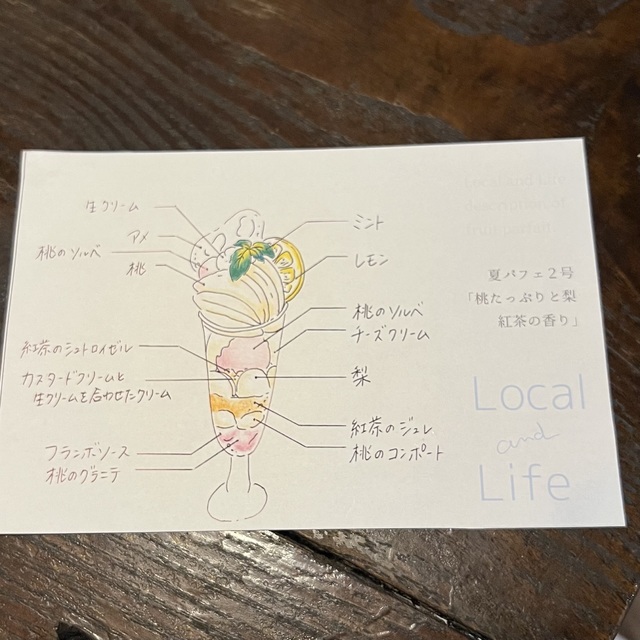 生クリーム
アメ
桃のソルベ
桃
紅茶のシュトロイゼル
カスタードクリームと
生クリームを合わせたクリーム
フランボソース
桃のグラニテ
ミント
レモン
桃のソルベ
チーズクリーム
梨
紅茶のジュレ
桃のコンポート
Local and Life
description of
fruit parfait
夏パフェ2号
「桃たっぷりと梨
紅茶の香り」
Local
and
Life